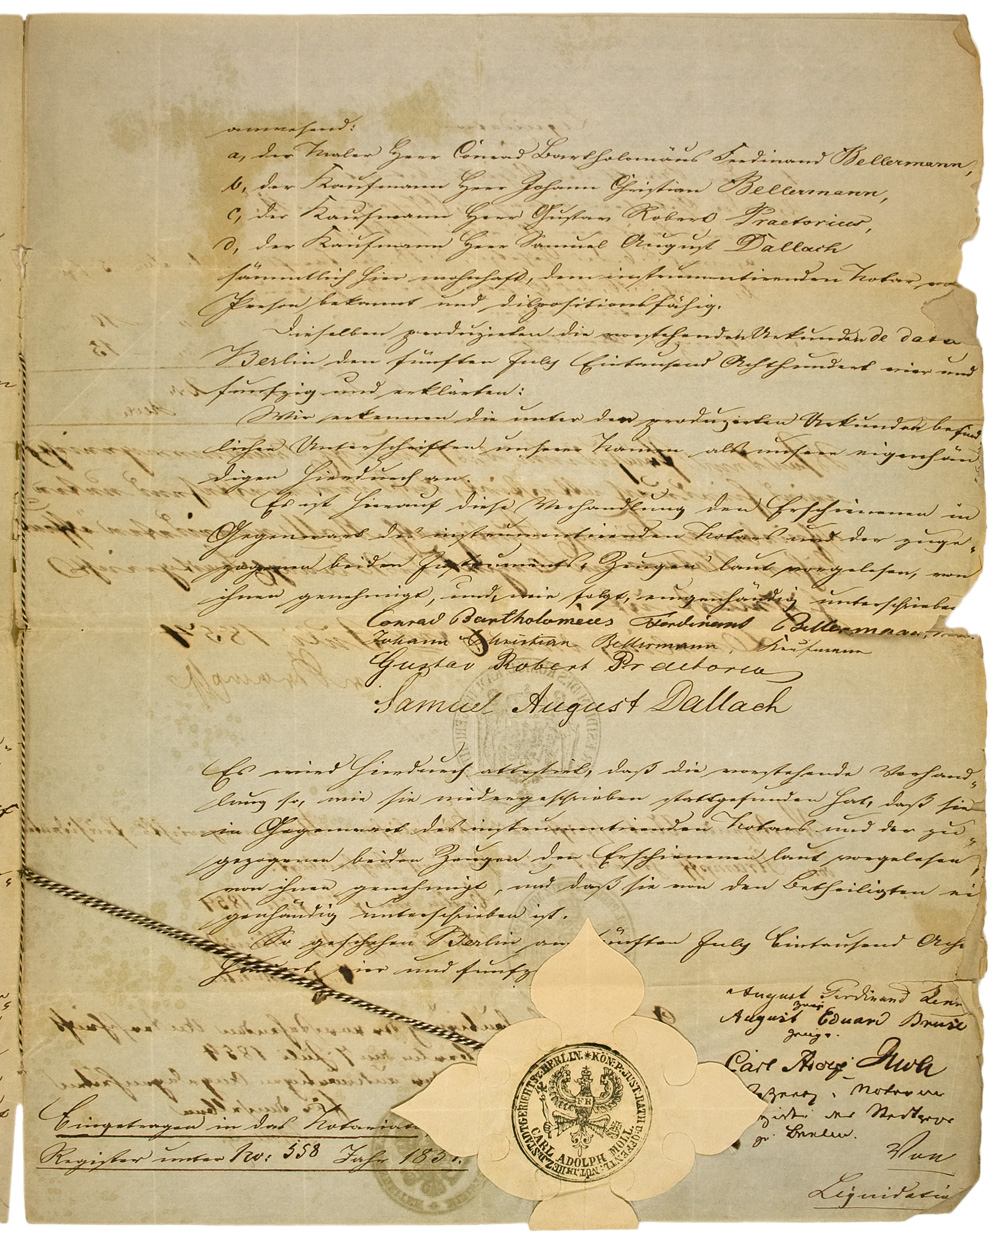 anwesend:
a, der Maler Herr Conrad Bartholomäus Ferdinand Bellermann,
b, der Kaufmann Herr Johann Christian Bellermann,
c, der Kaufmann Herr Gustav Robert Praetorius,
d, der Kaufmann Herr Samuel August Dallach
sämmtlich hier wohnhaft, dem instrumentirenden Notar von
Person bekannt und dispositionsfähig.
Dieselben produzirten die vorstehenden Urkunden de dato
Berlin den fünften July Eintausend Achthundert vier und
funfzig und erklärten:
Wir erkennen die unter den produzirten Urkunden befind
lichen Unterschriften unserer Namen als unsere eigenhän
digen hierdurch an.
Es ist hierauf diese Verhandlung den Erschienenen in
Gegenwart des instrumentirenden Notars und der zuge-
zogenen beiden Instruments-Zeugen laut vorgelesen, von
ihnen genehmigt, und, wie folgt, eigenhändig unterschrieben
Conrad Bartholomeus Ferdinand Bellermann
Johann Christian Bellermann, Kaufmann
Gustav Robert Praetorius
Samuel August Dallach
Es wird hierdurch attestirt, daß die vorstehende Verhand-
lung so, wie sie niedergeschrieben stattgefunden hat, daß sie
in Gegenwart des instrumentirenden Notars und der zu-
gezogenen beiden Zeugen den Erschienenen laut vorgelesen,
von ihnen genehmigt, und daß sie von den Betheiligten ei
genhändig unterschrieben ist.
So geschehen Berlin am fünften July Eintausend Acht
hundert vier und funfzig
August Ferdinand
Zeuge
August Eduard
Zeuge.
Carl Adolph Moll
Notar
der
zu Berlin.
BERLIN * KÖN: P. JUST. RATH
CARL ADOLPH MOLL
FR
Eingetragen in das Notariats
Register unter No: 558 Jahr 185
Von
Liquidatio